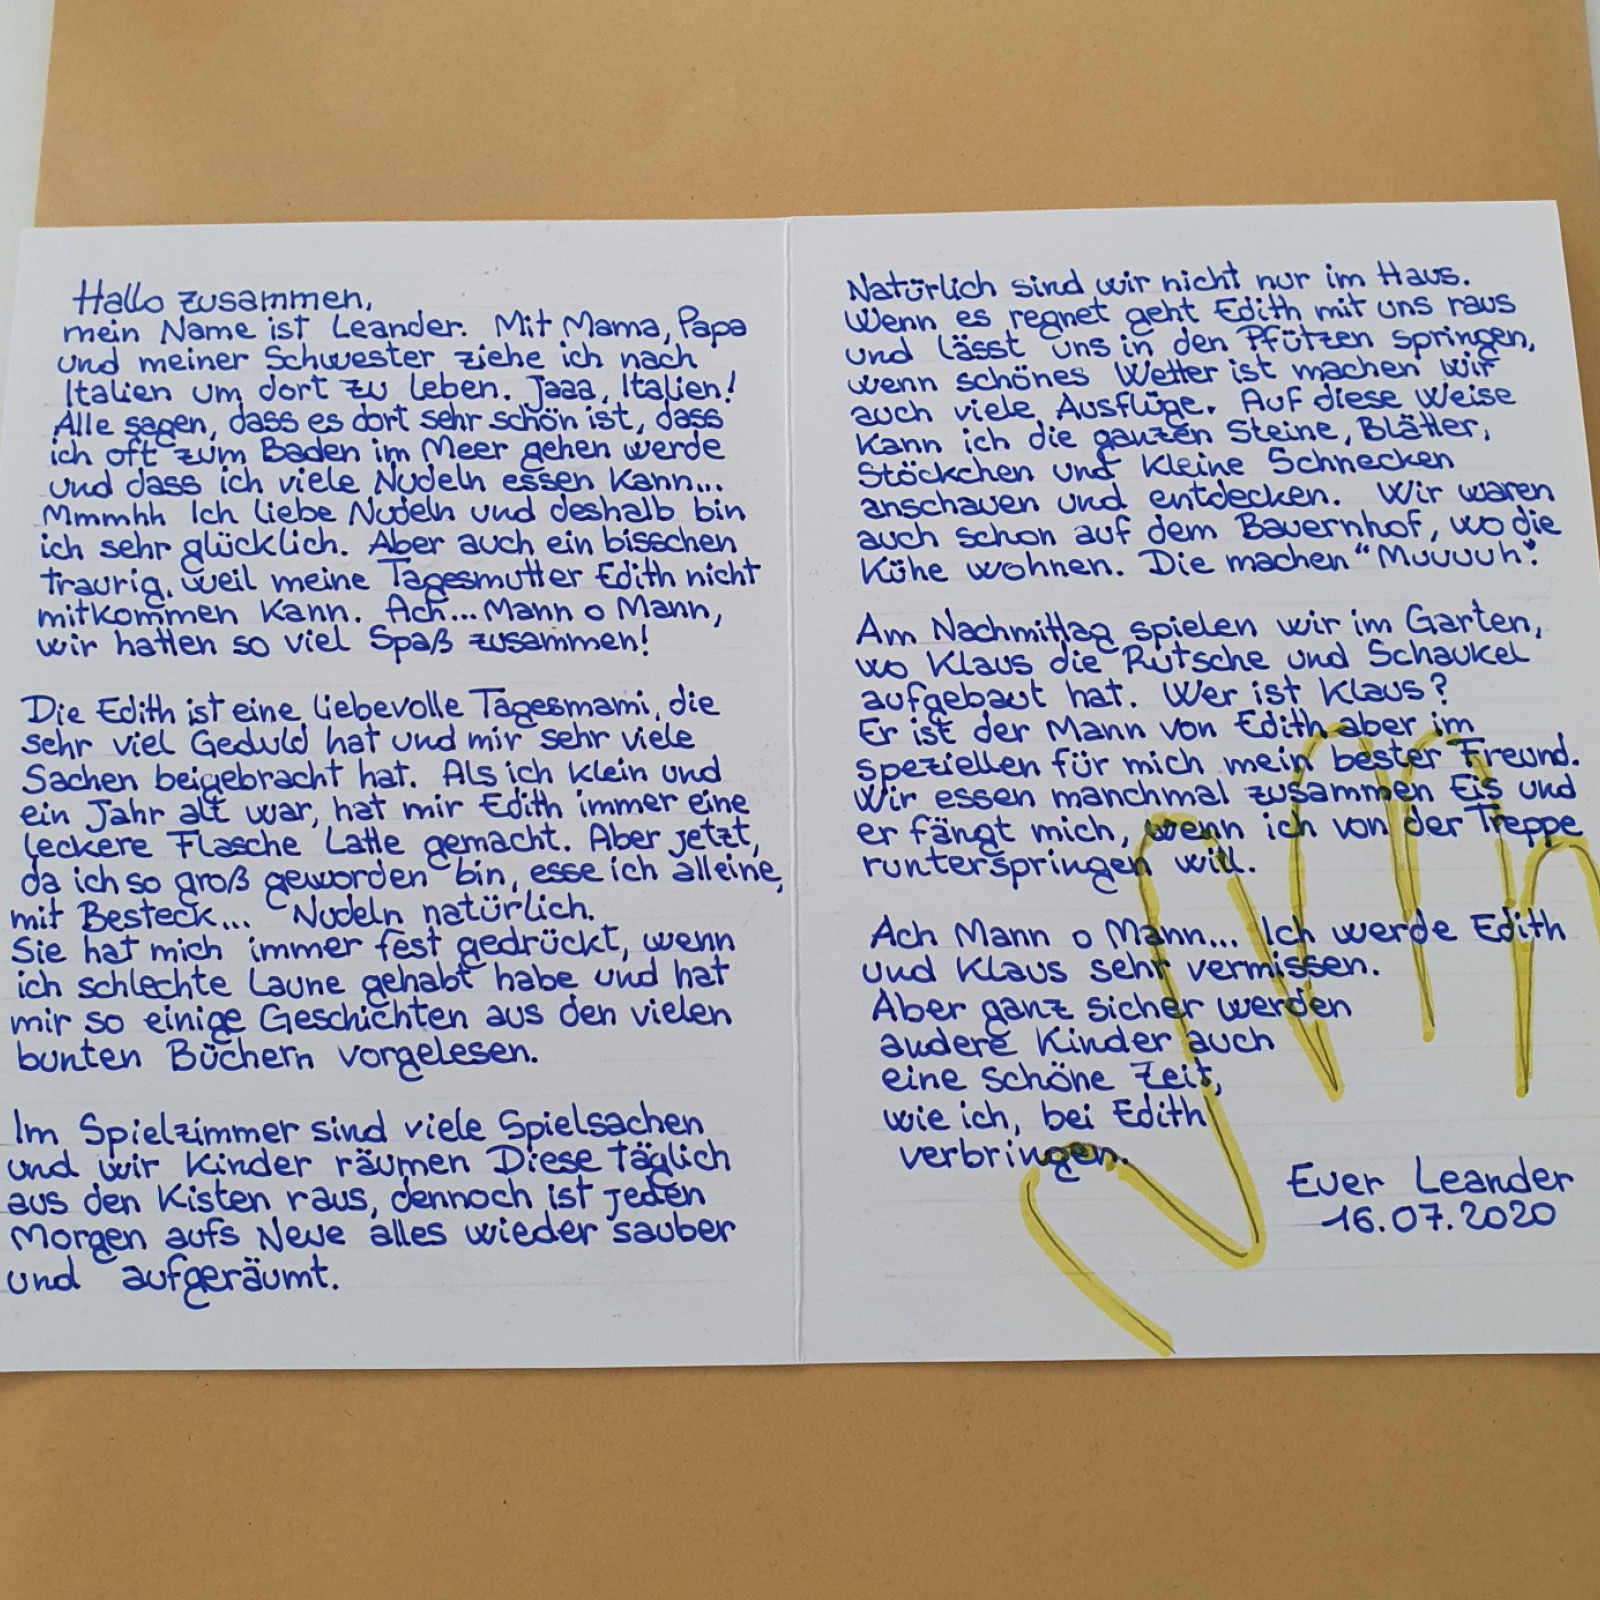 Hallo zusammen,
mein Name ist Leander. Mit Mama, Papa
und meiner Schwester ziehe ich nach
Italien um dort zu leben. Jaaa, Italien!
Alle sagen, dass es dort sehr schön ist, dass
ich oft zum Baden im Meer gehen werde
und dass ich viele Nudeln essen kann...
Mmmhh Ich liebe Nudeln und deshalb bin
ich sehr glücklich. Aber auch ein bisschen
traurig, weil meine Tagesmutter Edith nicht
mitkommen kann. Ach... Mann o Mann,
wir hatten so viel Spaß zusammen!
Die Edith ist eine liebevolle Tagesmami, die
sehr viel Geduld hat und mir sehr viele
Sachen beigebracht hat. Als ich klein und
ein Jahr alt war, hat mir Edith immer eine
leckere Flasche Latte gemacht. Aber jetzt,
da ich so groß geworden bin, esse ich alleine,
mit Besteck... Nudeln natürlich.
Sie hat mich immer fest gedrückt, wenn
ich schlechte Laune gehabt habe und hat
mir so einige Geschichten aus den vielen
bunten Büchern vorgelesen.
Im Spielzimmer sind viele Spielsachen
und wir Kinder räumen Diese täglich
aus den Kisten raus, dennoch ist jeden
Morgen aufs Neue alles wieder sauber
und aufgeräumt.
Natürlich sind wir nicht nur im Haus.
Wenn es regnet geht Edith mit uns raus
und lässt uns in den Pfützen springen,
wenn schönes Wetter ist machen wir
auch viele Ausflüge. Auf diese Weise
kann ich die ganzen Steine, Blätter,
Stöckchen und kleine Schnecken
anschauen und entdecken. Wir waren
auch schon auf dem Bauernhof, wo die
Kühe wohnen. Die machen "Muuuuh".
Am Nachmittag spielen wir im Garten,
wo Klaus die Rutsche und Schaukel
aufgebaut hat. Wer ist Klaus?
Er ist der Mann von Edith aber im
speziellen für mich mein bester Freund.
Wir essen manchmal zusammen Eis und
er fängt mich, wenn ich von der Treppe
runterspringen will.
Ach Mann o Mann... Ich werde Edith
und Klaus sehr vermissen.
Aber ganz sicher werden
andere Kinder auch
eine schöne Zeit,
wie ich, bei Edith
verbringen.
Euer Leander
16.07.2020